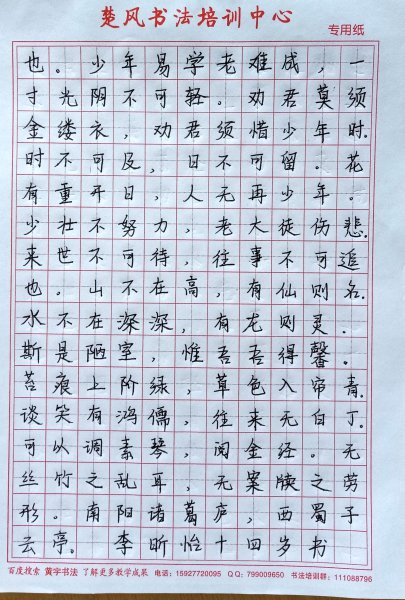 楚风书法培训中心
专用纸
也。少年易学老难成，一
寸光阴不可轻。劝君莫须
金缕衣，劝君须惜少年时.
时不可及，日不可留。花
有重开日，人无再少年。
少壮不努力，老大徒伤悲.
来世不可待，往事不可追
也。山不在高，有仙则名.
水不在深深，有龙则灵.
斯是陋室，惟吾吾得馨。
苔痕上阶绿，草色入帘青.
谈笑有鸿儒，往来无白丁.
可以调素琴，阅金经。无
丝竹之乱耳，无案牍之劳
形。南阳诸葛庐，西蜀子
云亭。李昕怡十四岁书
百度搜索 黄字书法 了解更多教学成果 电话：15927720095 QQ：799009650 书法培训群：111088796